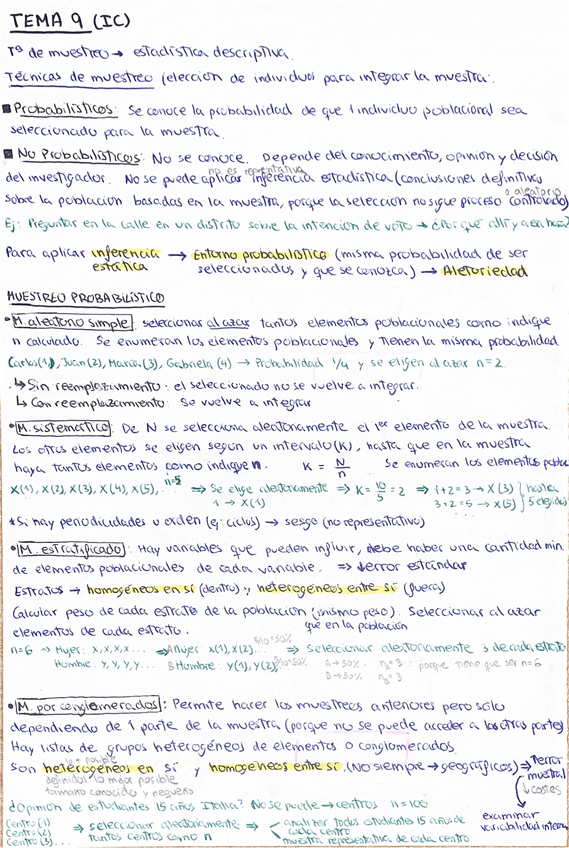 TEMA 9 (IC)
Tª de muestreo → estadística descriptiva.
Técnicas de muestreo (elección de individuos para integrar la muestra.
■ Probabilísticos: Se conoce la probabilidad de que 1 individuo poblacional sea
seleccionado para la muestra.
■ No Probabilísticos: No se conoce. Depende del conocimiento, opinión y decisión
no es reprentativa
del investigador. No se puede aplicar inferencia estadística (conclusiones definitivas
o aleatorio
sobre la población basadas en la muestra, porque la selección no sigue proceso controlado)
Ej: Preguntar en la calle en un distrito sobre la intención de voto → ¿Por qué allí y a esa hora?
Para aplicar inferencia → Entorno probabilístico (misma probabilidad de ser
estática seleccionados y que se conozca) → Aletoriedad
MUESTREO PROBABILÍSTICO
• M. aleatorio simple: seleccionar al azar tantos elementos poblacionales como indique
n calculado. Se enumeran los elementos poblacionales y tienen la misma probabilidad
Carlos(1), Juan(2), María(3), Gabriela(4) → Probabilidad 1/4 y se eligen al azar n=2.
↳ Sin reemplazamiento: el seleccionado no se vuelve a integrar.
↳ Con reemplazamiento: Se vuelve a integrar
• M. sistemático: De N se selecciona aleatoriamente el 1er elemento de la muestra
Los otros elementos se eligen según un intervalo (K), hasta que en la muestra
haya tantos elementos como indique n. K = N/n Se enumeran los elementos
n=5
X(1), X(2), X(3), X(4), X(5),... ⇒ Se elige aleatoriamente ⇒ K = 10/5 = 2 ⇒ 1+2=3 → X(3) hasta
1 → X(1) 3+2=5 → X(5) 5 elegidos
* Si hay periodicidades u orden (ej: ciclos) → sesgo (no representativo)
• M. estratificado: Hay variables que pueden influir, debe haber una cantidad min
de elementos poblacionales de cada variable. ⇒ ↓error estándar
Estratos → homogéneos en sí (dentro) y heterogéneos entre sí (fuera)
Calcular peso de cada estrato de la población (mismo peso). Seleccionar al azar
elementos de cada estrato. que en la población
5/10=50%
n=6 → Mujer: X,X,X,X... ⇒ A Mujer: X(1), X(2)... ⇒ Seleccionar aleatoriamente 3 de cada estrato
Hombre: Y,Y,Y,Y... B Hombre: Y(1), Y(2), 5/10=50% A→50%. n =3 porque tiene que ser n=6
B→50%. n =3
• M. por conglomerados: Permite hacer los muestreos anteriores pero sólo
dependiendo de 1 parte de la muestra (porque no se puede acceder a las otras partes)
Hay listas de grupos heterogéneos de elementos o conglomerados.
lo + posible
Son heterogéneos en sí y homogéneos entre sí. (No siempre → geográficos) ⇒ ↑error
definidos lo mejor posible muestral
tamaño conocido y pequeño ↓costes
¿Opinión de estudiantes 15 años Italia? No se puede → centros n=100
examinar
variabilidad interna
Centro (1) ⇒ seleccionar aleatoriamente ⇒ analizar todos estudiantes 15 años de
Centro (2) tantos centros como n cada centro
Centro (3)... muestra representativa de cada centro